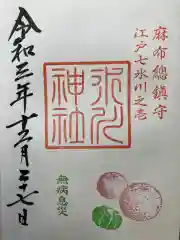 麻布總鎮守
江戸七氷川之壱
氷川神社
令和三年十二月二十七日
無病息災